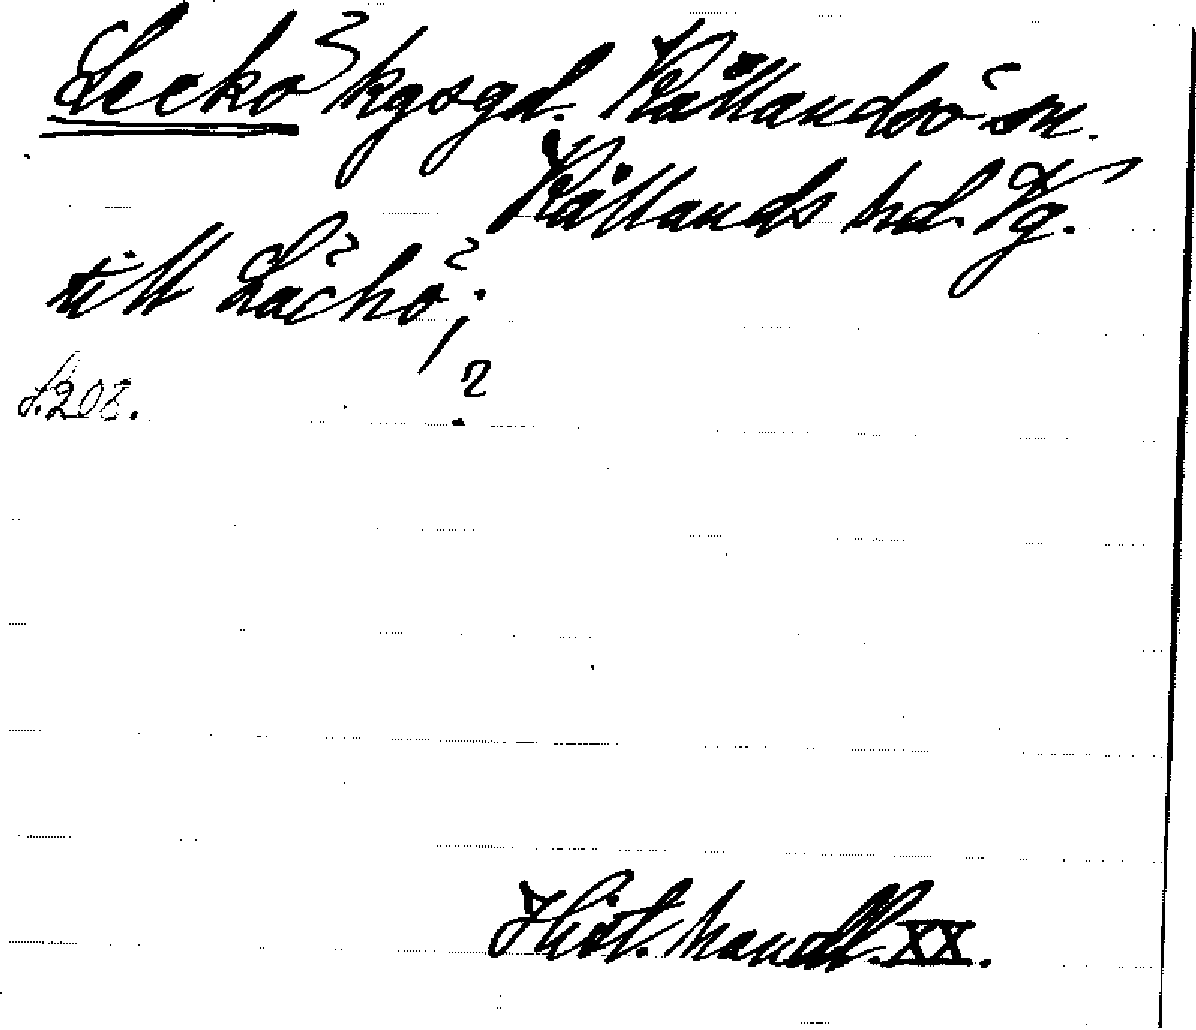 Leckö kgsgd. Kållandsö sn.
Kållands hd. Vg.
till Läckö;
S. 208.
Hist. handl. XX.